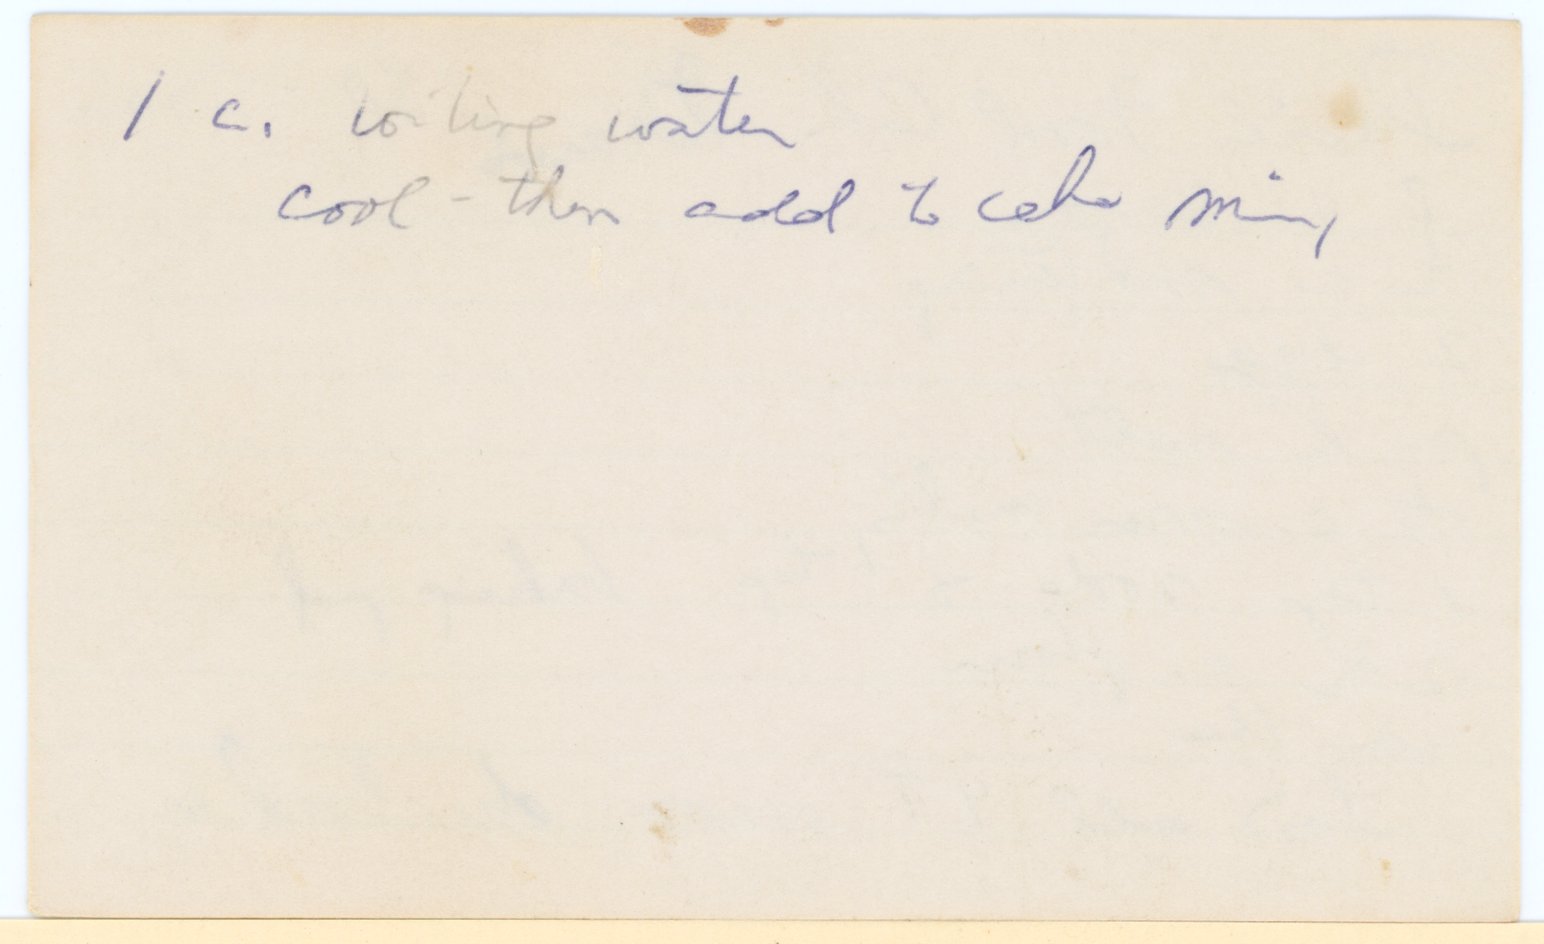 1 c. boiling water
cool - then add to cake mix,